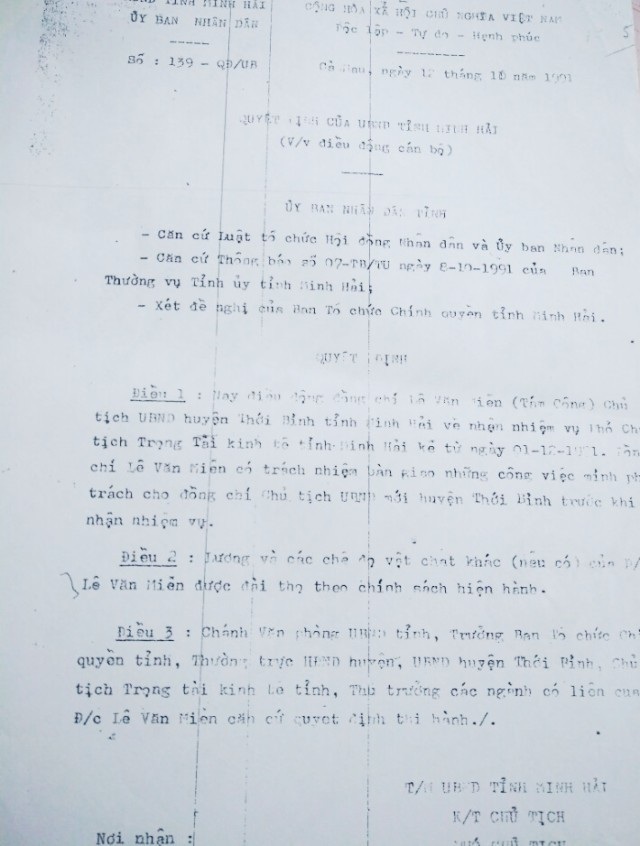 UBND TỈNH MINH HẢI
ỦY BAN NHÂN DÂN
CỘNG HÒA XÃ HỘI CHỦ NGHĨA VIỆT NAM
Độc lập - Tự do - Hạnh phúc
Số : 139 - QĐ/UB
Cà Mau, ngày 12 tháng 10 năm 1991
5
QUYẾT ĐỊNH CỦA UBND TỈNH MINH HẢI
(V/v điều động cán bộ)
ỦY BAN NHÂN DÂN TỈNH
- Căn cứ Luật tổ chức Hội đồng Nhân dân và Ủy ban Nhân dân;
- Căn cứ Thông báo số 07-TB/TU ngày 8-10-1991 của Ban
Thường vụ Tỉnh ủy tỉnh Minh Hải;
- Xét đề nghị của Ban Tổ chức Chính quyền tỉnh Minh Hải.
QUYẾT ĐỊNH
Điều 1 : Nay điều động đồng chí Lê Văn Miên (Tám Công) Chủ
tịch UBND huyện Thới Bình tỉnh Minh Hải về nhận nhiệm vụ Phó Chủ
tịch Trọng Tài kinh tế tỉnh Minh Hải kể từ ngày 01-12-1991.
chí Lê Văn Miên có trách nhiệm bàn giao những công việc mình ph
trách cho đồng chí Chủ tịch UBND mới huyện Thới Bình trước khi
nhận nhiệm vụ.
Điều 2 : Lương và các chế độ vật chất khác (nếu có) của Đ/
Lê Văn Miên được đài thọ theo chính sách hiện hành.
Điều 3 : Chánh Văn phòng UBND tỉnh, Trưởng Ban Tổ chức Ch
quyền tỉnh, Thường trực HĐND huyện, UBND huyện Thới Bình, Chủ
tịch Trọng tài kinh tế tỉnh, Thủ trưởng các ngành có liên qua
Đ/c Lê Văn Miên căn cứ quyết định thi hành./.
T/M UBND TỈNH MINH HẢI
K/T CHỦ TỊCH
PHÓ CHỦ TỊCH
Nơi nhận :